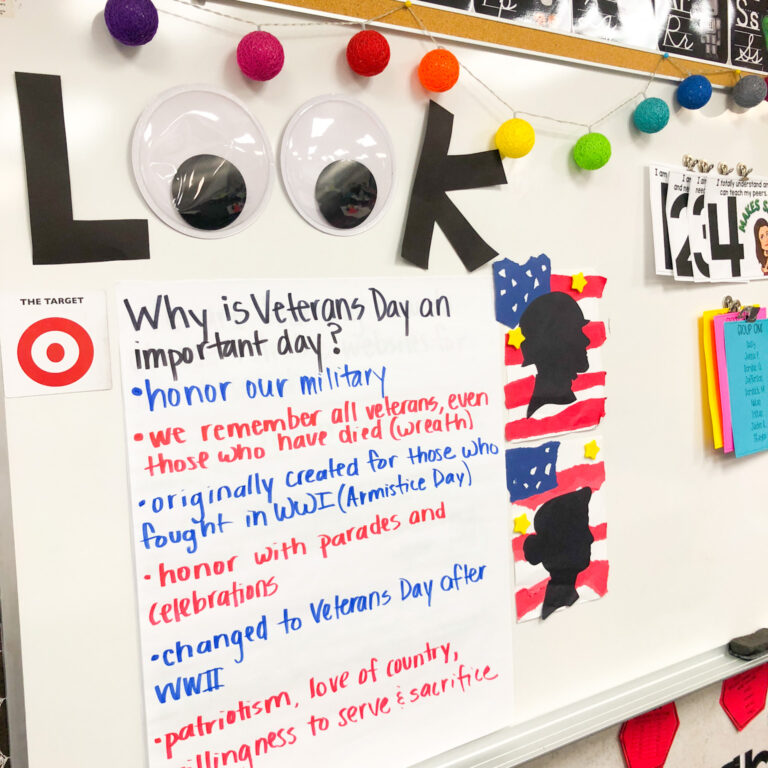 Rr
Ss
LOOK
THE TARGET
Why is Veterans Day an
important day?
• honor our military
• we remember all veterans, even
those who have died (wreath)
• originally created for those who
fought in WWI (Armistice Day)
• honor with parades and
celebrations
• changed to Veterans Day after
WWII
• patriotism, love of country,
willingness to serve & sacrifice
I am
I am
and nee
I am
I totally understand an
can teach my peers.
2
3
4
MAKES S
GROUP ONE